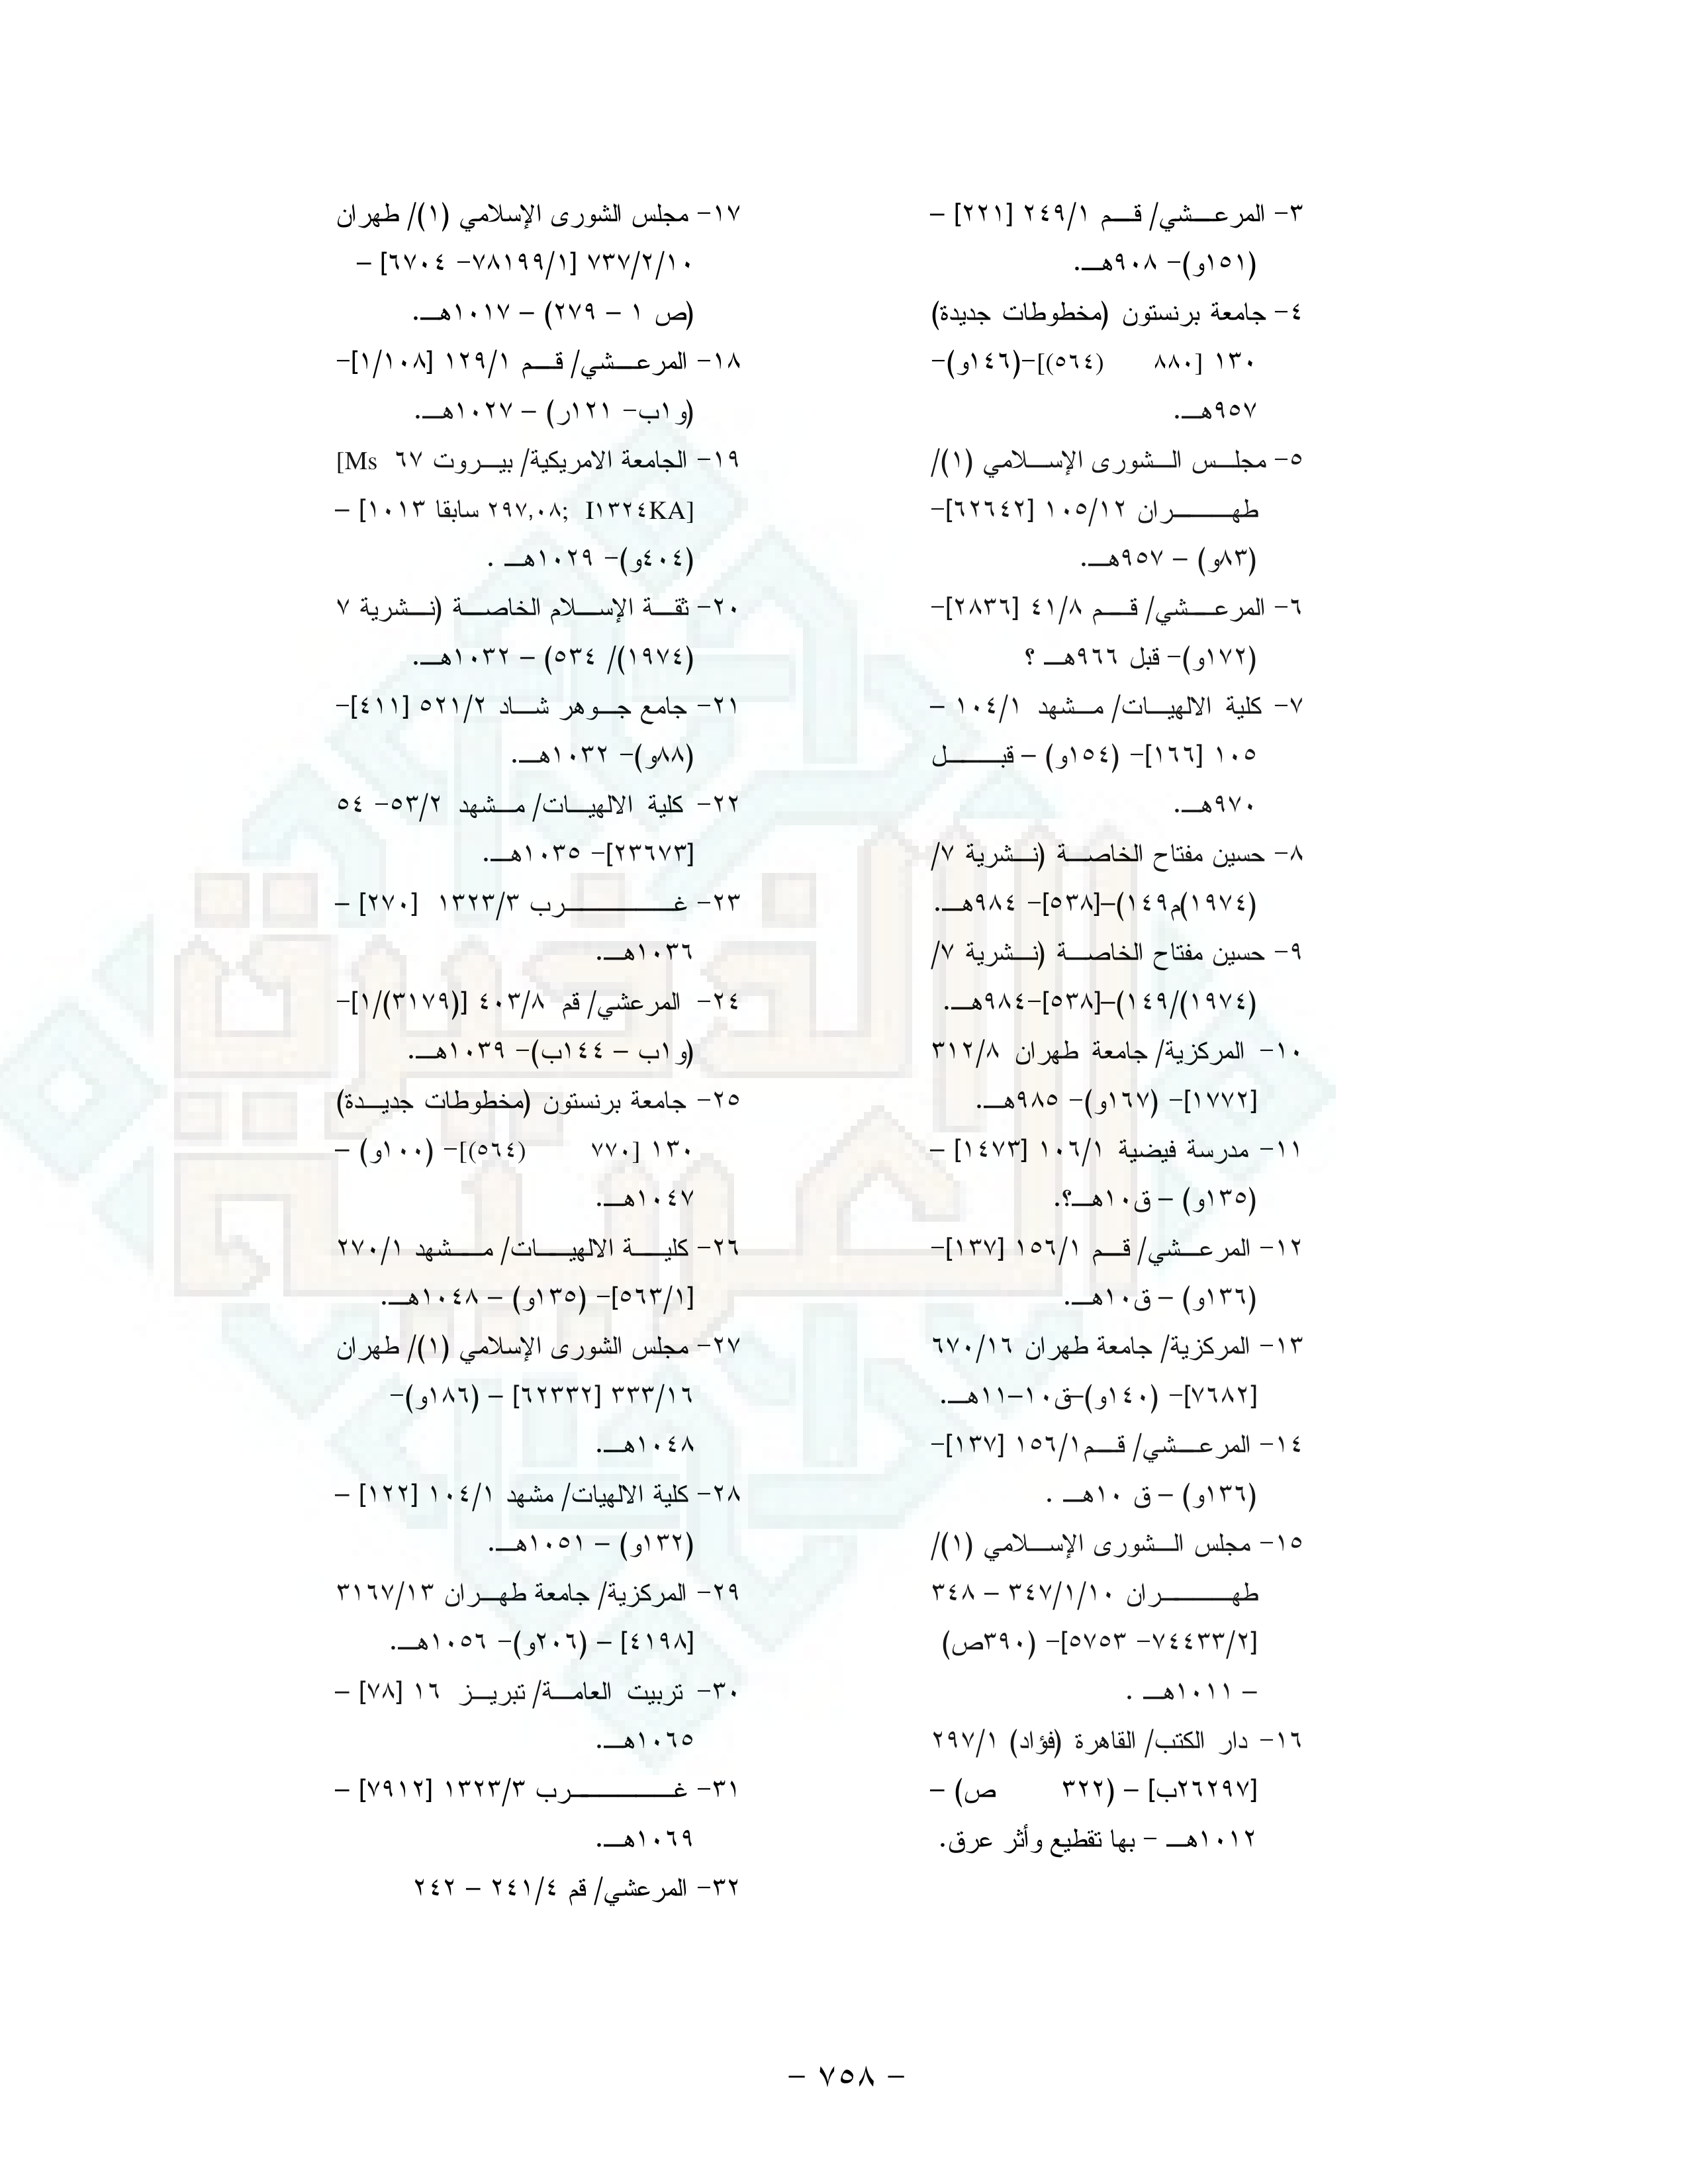 ٣- المرعشي/ قم ٢٤٩/١ [٢٢١] –
(١٥١و)- ٩٠٨هـ.
٤- جامعة برنستون (مخطوطات جديدة)
١٣٠ [٨٨٠ (٥٦٤)]-(١٤٦و)-
٩٥٧هـ.
٥- مجلس الشورى الإسلامي (١)/
طهران ١٠٥/١٢ [٦٢٦٤٢]-
(٨٣و) – ٩٥٧هـ.
٦- المرعشي/ قم ٤١/٨ [٢٨٣٦]-
(١٧٢و)- قبل ٩٦٦هـ ؟
٧- كلية الالهيات/ مشهد ١٠٤/١ –
١٠٥ [١٦٦]- (١٥٤و) – قبل
٩٧٠هـ.
٨- حسين مفتاح الخاصة (نشرية ٧/
(١٩٧٤)م١٤٩)–[٥٣٨]- ٩٨٤هـ.
٩- حسين مفتاح الخاصة (نشرية ٧/
(١٩٧٤)/١٤٩)–[٥٣٨]-٩٨٤هـ.
١٠- المركزية/ جامعة طهران ٣١٢/٨
[١٧٧٢]- (١٦٧و)- ٩٨٥هـ.
١١- مدرسة فيضية ١٠٦/١ [١٤٧٣] –
(١٣٥و) – ق١٠هـ؟.
١٢- المرعشي/ قم ١٥٦/١ [١٣٧]-
(١٣٦و) – ق١٠هـ.
١٣- المركزية/ جامعة طهران ٦٧٠/١٦
[٧٦٨٢]- (١٤٠و)–ق١٠–١١هـ.
١٤- المرعشي/ قم١٥٦/١ [١٣٧]-
(١٣٦و) – ق ١٠هـ .
١٥- مجلس الشورى الإسلامي (١)/
طهران ٣٤٧/١/١٠ – ٣٤٨
[٧٤٤٣٣/٢- ٥٧٥٣]- (٣٩٠ص)
– ١٠١١هـ .
١٦- دار الكتب/ القاهرة (فؤاد) ٢٩٧/١
[٢٦٢٩٧ب] – (٣٢٢ ص) –
١٠١٢هـ – بها تقطيع وأثر عرق.
١٧- مجلس الشورى الإسلامي (١)/ طهران
٧٣٧/٢/١٠ [٧٨١٩٩/١- ٦٧٠٤] –
(ص ١ – ٢٧٩) – ١٠١٧هـ.
١٨- المرعشي/ قم ١٢٩/١ [١/١٠٨]-
(و١ب- ١٢١ر) – ١٠٢٧هـ.
١٩- الجامعة الامريكية/ بيروت ٦٧ [Ms
٢٩٧,٠٨; I١٣٢٤KA] سابقا ١٠١٣] –
(٤٠٤و)- ١٠٢٩هـ .
٢٠- ثقة الإسلام الخاصة (نشرية ٧
(١٩٧٤)/ ٥٣٤) – ١٠٣٢هـ.
٢١- جامع جوهر شاد ٥٢١/٢ [٤١١]-
(٨٨و)- ١٠٣٢هـ.
٢٢- كلية الالهيات/ مشهد ٥٣/٢- ٥٤
[٢٣٦٧٣]- ١٠٣٥هـ.
٢٣- غرب ١٣٢٣/٣ [٢٧٠] –
١٠٣٦هـ.
٢٤- المرعشي/ قم ٤٠٣/٨ [(٣١٧٩)/١]-
(و١ب – ١٤٤ب)- ١٠٣٩هـ.
٢٥- جامعة برنستون (مخطوطات جديدة)
١٣٠ [٧٧٠ (٥٦٤)]- (١٠٠و) –
١٠٤٧هـ.
٢٦- كلية الالهيات/ مشهد ٢٧٠/١
[٥٦٣/١]- (١٣٥و) – ١٠٤٨هـ.
٢٧- مجلس الشورى الإسلامي (١)/ طهران
٣٣٣/١٦ [٦٢٣٣٢] – (١٨٦و)-
١٠٤٨هـ.
٢٨- كلية الالهيات/ مشهد ١٠٤/١ [١٢٢] –
(١٣٢و) – ١٠٥١هـ.
٢٩- المركزية/ جامعة طهران ٣١٦٧/١٣
[٤١٩٨] – (٢٠٦و)- ١٠٥٦هـ.
٣٠- تربيت العامة/ تبريز ١٦ [٧٨] –
١٠٦٥هـ.
٣١- غرب ١٣٢٣/٣ [٧٩١٢] –
١٠٦٩هـ.
٣٢- المرعشي/ قم ٢٤١/٤ – ٢٤٢
– ٧٥٨ –